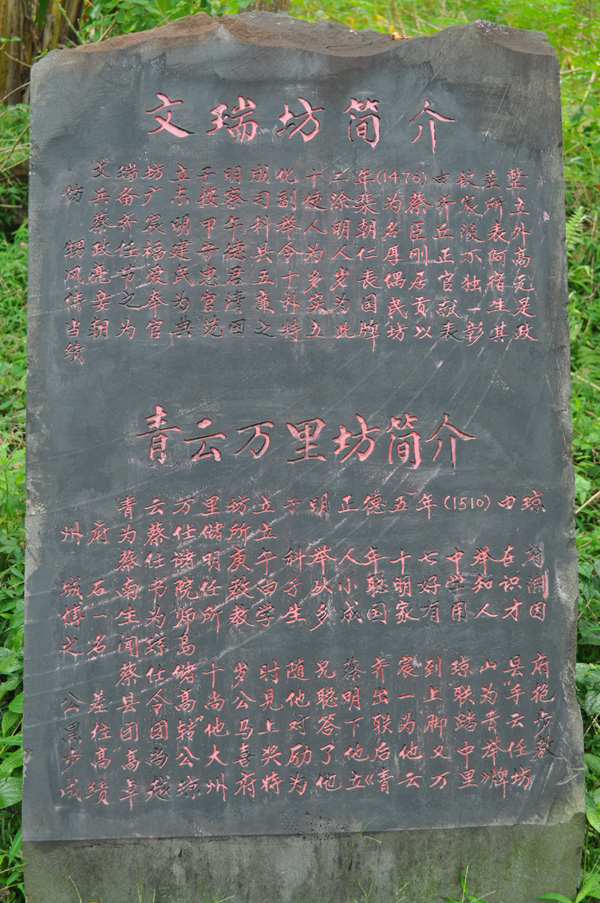 文瑞坊简介
文瑞坊立于明成化十二年(1476)由钦差整
兵备广东按察司副使涂棐为蔡齐宸所立
坊
蔡齐宸明甲午科举人明朝名臣丘浚表外
甥 政任福建 德 令为人仁厚刚正不阿高
风亮节爱民忠君五十多岁表偶居官独宿无
妾之奉为官清廉 为国民贡献一生是
当朝为官典范 之特立此牌坊以表彰其政
绩
青云万里坊简介
青云万里坊立于明正德五年(1510)由琼
州府为蔡仕储所立
蔡仕储明庚午科举人年十七中举在
城石南书院任教由于从小聪明好学知识渊
博一生为师所教学生多成国家有用人才因
之名闻琼岛
蔡仕储十岁时随兄蔡齐宸到琼山县府
公差县令高公见他聪明出一上联为"手抱
黑柱团团转"他马上对答下联为"脚踏青云步
步高"高公大喜奖励了他后他又中举任教
成绩卓越琼州府特为他立《青云万里》牌坊